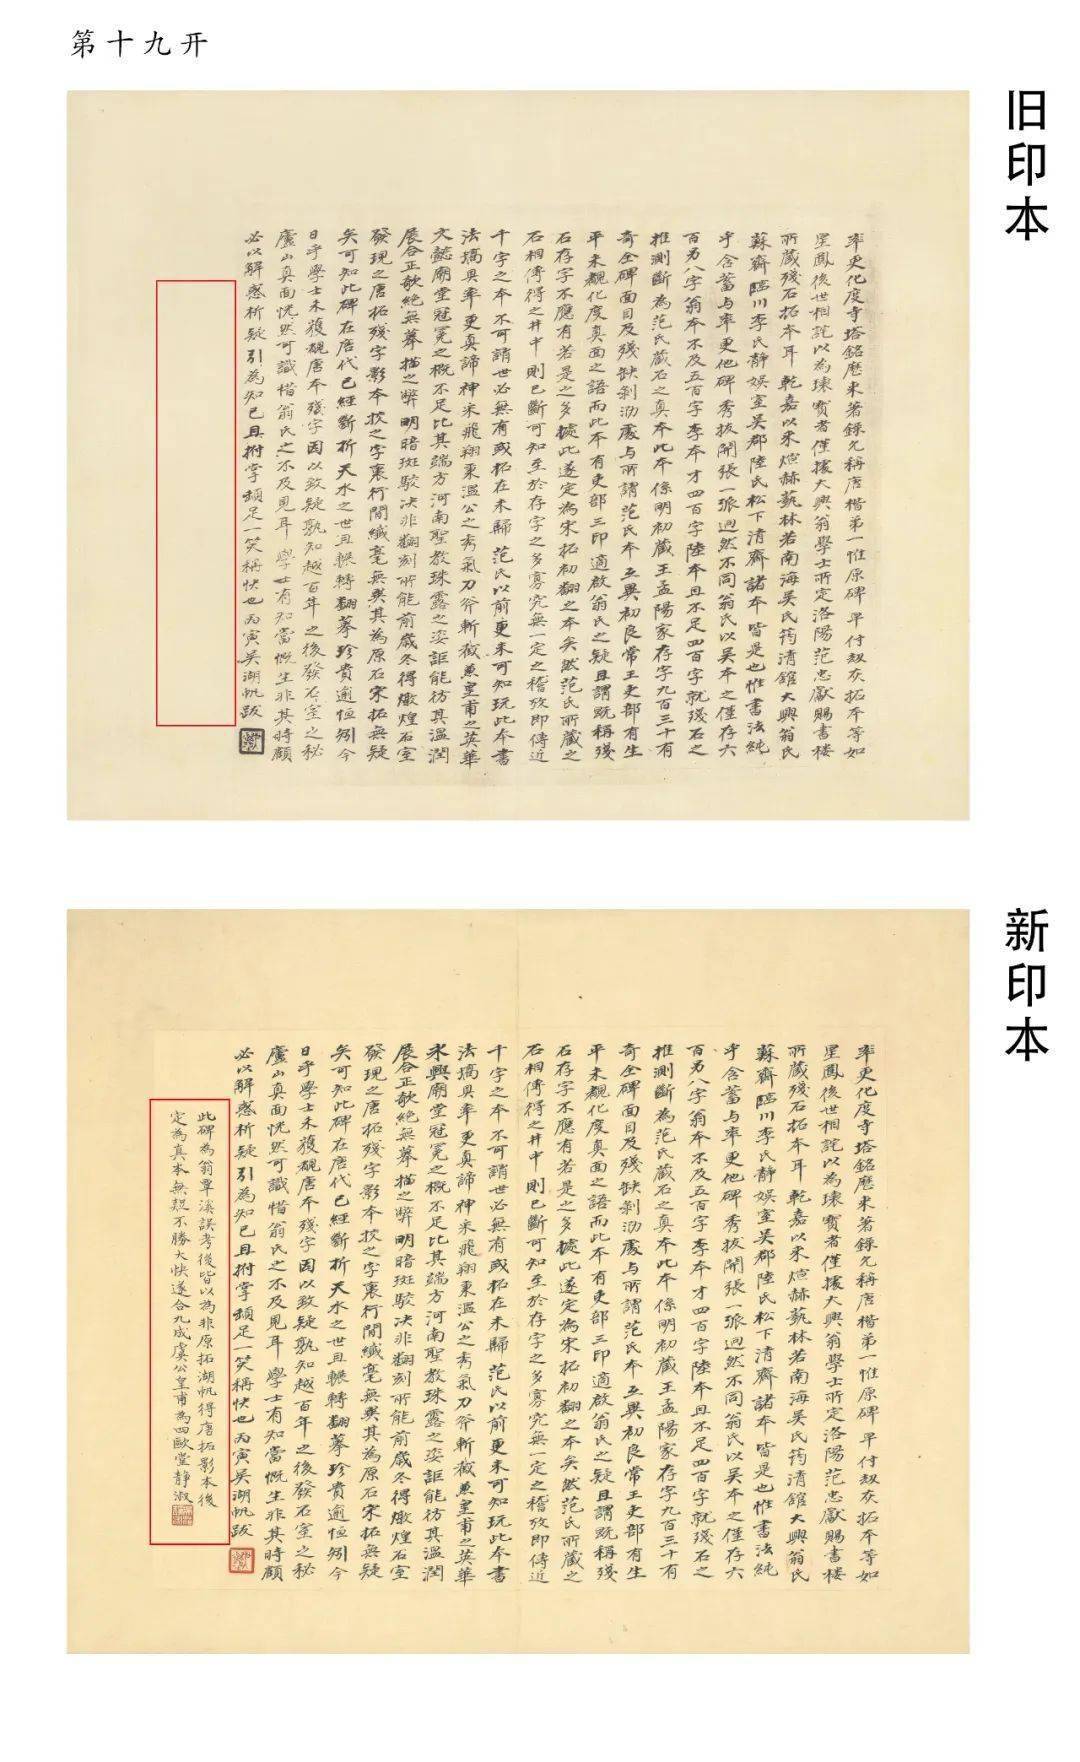 第十九开
旧印本
率更化度寺塔銘歷來著錄允稱唐楷第一惟原碑早付劫灰拓本等如
星鳳後世相詫以為瓌寶者僅據大興翁學士所定洛陽范忠獻賜書樓
所藏殘石拓本耳乾嘉以來煊赫藝林若南海吳氏筠清館大興翁氏
蘇齋臨川李氏靜娛室吳郡陸氏松下清齋諸本皆是也惟書法純
乎含蓄与率更他碑秀拔開張一派迥然不同翁氏以吳本之僅存六
百另八字翁本不及五百字李本才四百字陸本且不足四百字就殘石之
推測斷為范氏藏石之真本此本係明初藏王孟陽家存字九百三十有
奇全碑面目及殘缺剝泐處与所謂范氏本立異初良常王吏部有生
平未覩化度真面之語而此本有吏部三印適啟翁氏之疑且謂既稱殘
石存字不應有若是之多據此遂定為宋拓初翻之本矣然范氏所藏之
石相傳得之井中則已斷可知至於存字之多寡究無一定之稽攷即傳近
千字之本不可謂世必無有或拓在未歸范氏以前更未可知玩此本書
法搞具率更真諦神采飛翔秉溫公之秀氣刀斧斬截兼皇甫之英華
文懿廟堂冠冕之概不足比其端方河南聖教珠露之姿詎能彷其溫潤
展合正欹絕無摹描之弊明暗斑駁决非翻刻所能前歲冬得燉煌石室
發現之唐拓殘字影本挍之字裏行間纖毫無異其為原石宋拓無疑
矣可知此碑在唐代已經斷折天水之世且輾轉翻摹珍貴逾恒矧今
日乎學士未獲覩唐本殘字因以致疑孰知越百年之後發石室之秘
廬山真面恍然可識惜翁氏之不及見耳學士有知當慨生非其時顧
必以解惑析疑引為知己且拊掌頓足一笑稱快也丙寅吳湖帆跋
新印本
率更化度寺塔銘歷來著錄允稱唐楷第一惟原碑早付劫灰拓本等如
星鳳後世相詫以為瓌寶者僅據大興翁學士所定洛陽范忠獻賜書樓
所藏殘石拓本耳乾嘉以來煊赫藝林若南海吳氏筠清館大興翁氏
蘇齋臨川李氏靜娛室吳郡陸氏松下清齋諸本皆是也惟書法純
乎含蓄与率更他碑秀拔開張一派迥然不同翁氏以吳本之僅存六
百另八字翁本不及五百字李本才四百字陸本且不足四百字就殘石之
推測斷為范氏藏石之真本此本係明初藏王孟陽家存字九百三十有
奇全碑面目及殘缺剝泐處与所謂范氏本立異初良常王吏部有生
平未覩化度真面之語而此本有吏部三印適啟翁氏之疑且謂既稱殘
石存字不應有若是之多據此遂定為宋拓初翻之本矣然范氏所藏之
石相傳得之井中則已斷可知至於存字之多寡究無一定之稽攷即傳近
千字之本不可謂世必無有或拓在未歸范氏以前更未可知玩此本書
法搞具率更真諦神采飛翔秉溫公之秀氣刀斧斬截兼皇甫之英華
永興廟堂冠冕之概不足比其端方河南聖教珠露之姿詎能彷其溫潤
展合正欹絕無摹描之弊明暗斑駁决非翻刻所能前歲冬得燉煌石室
發現之唐拓殘字影本挍之字裏行間纖毫無異其為原石宋拓無疑
矣可知此碑在唐代已經斷折天水之世且輾轉翻摹珍貴逾恒矧今
日乎學士未獲覩唐本殘字因以致疑孰知越百年之後發石室之秘
廬山真面恍然可識惜翁氏之不及見耳學士有知當慨生非其時顧
必以解惑析疑引為知己且拊掌頓足一笑稱快也丙寅吳湖帆跋
此碑為翁覃溪誤考後皆以為非原拓湖帆得唐拓影本後
定為真本無疑不勝大快遂合九成虞公皇甫為四歐堂靜淑